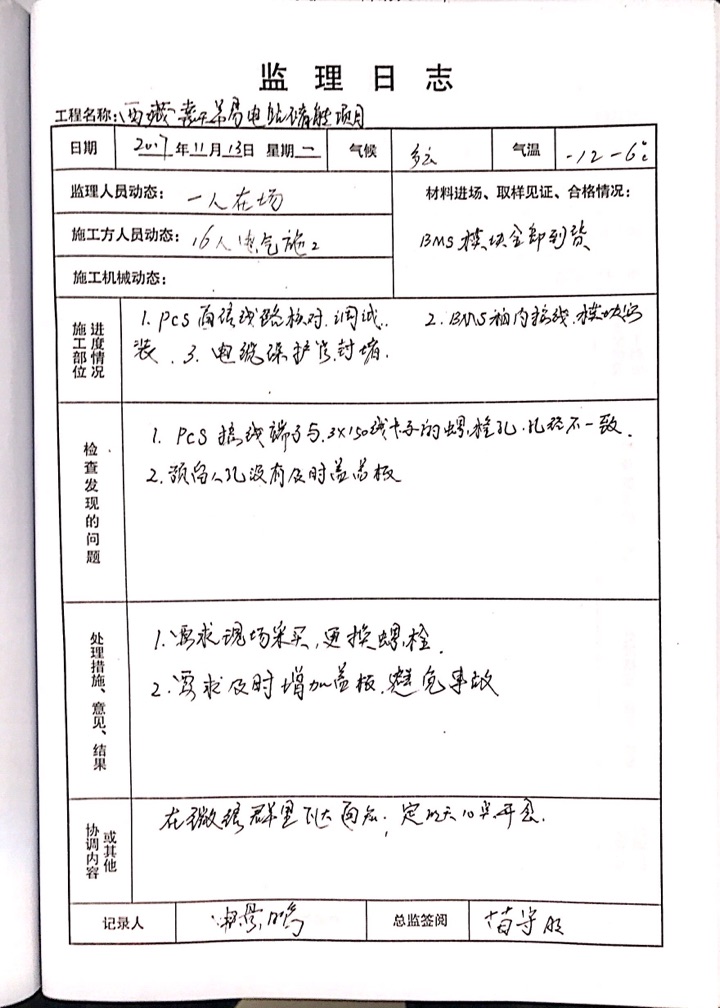 监理日志
工程名称:西藏 易电站储能项目
日期 2017年11月13日 星期一 气候 多云 气温 -12-6℃
监理人员动态: 一人在场
材料进场、取样见证、合格情况:
施工方人员动态: 16人电气施工
BMS模块全部到货
施工机械动态:
施工部位 进度情况
1. PCS 通信线路核对.调试. 2. BMS箱内接线.模块安
装. 3. 电缆保护管封堵.
检查发现的问题
1. PCS接线端子与.3×150线卡子的螺栓孔.孔径不一致.
2. 预留人孔没有及时盖盖板
处理措施、意见、结果
1. 要求现场采买,更换螺栓.
2. 要求及时增加盖板.避免事故
协调内容 或其他
在微信群里下达通知. 定明天10点开会.
记录人 总监签阅 苗守